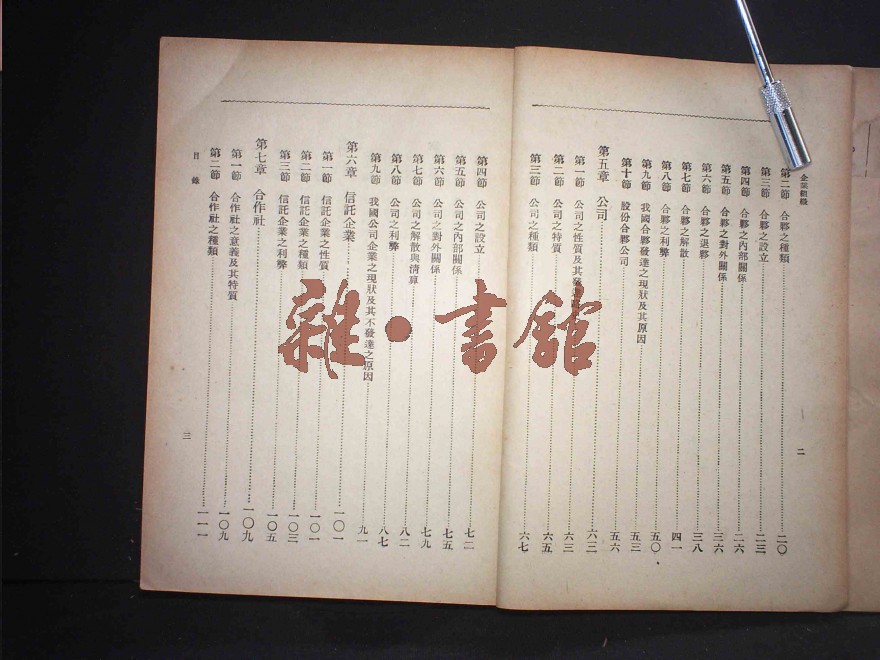 企業組織
第二節 合夥之種類……二〇
第三節 合夥之設立……二三
第四節 合夥之內部關係……二六
第五節 合夥之對外關係……三六
第六節 合夥之退夥……三八
第七節 合夥之解散……四一
第八節 合夥之利弊……五〇
第九節 我國合夥發達之現狀及其原因……五三
第十節 股份合夥公司……五六
第五章 公司……六三
第一節 公司之性質及其……六三
第二節 公司之特質……六五
第三節 公司之種類……六七
二
第四節 公司之設立……七二
第五節 公司之內部關係……七五
第六節 公司之對外關係……七九
第七節 公司之解散與清算……八二
第八節 公司之利弊……八七
第九節 我國公司企業之現狀及其不發達之原因……九一
第六章 信託企業……一〇一
第一節 信託企業之性質……一〇一
第二節 信託企業之種類……一〇三
第三節 信託企業之利弊……一〇五
第七章 合作社……一〇九
第一節 合作社之意義及其特質……一〇九
第二節 合作社之種類……一一一
目錄
三
雜·書館